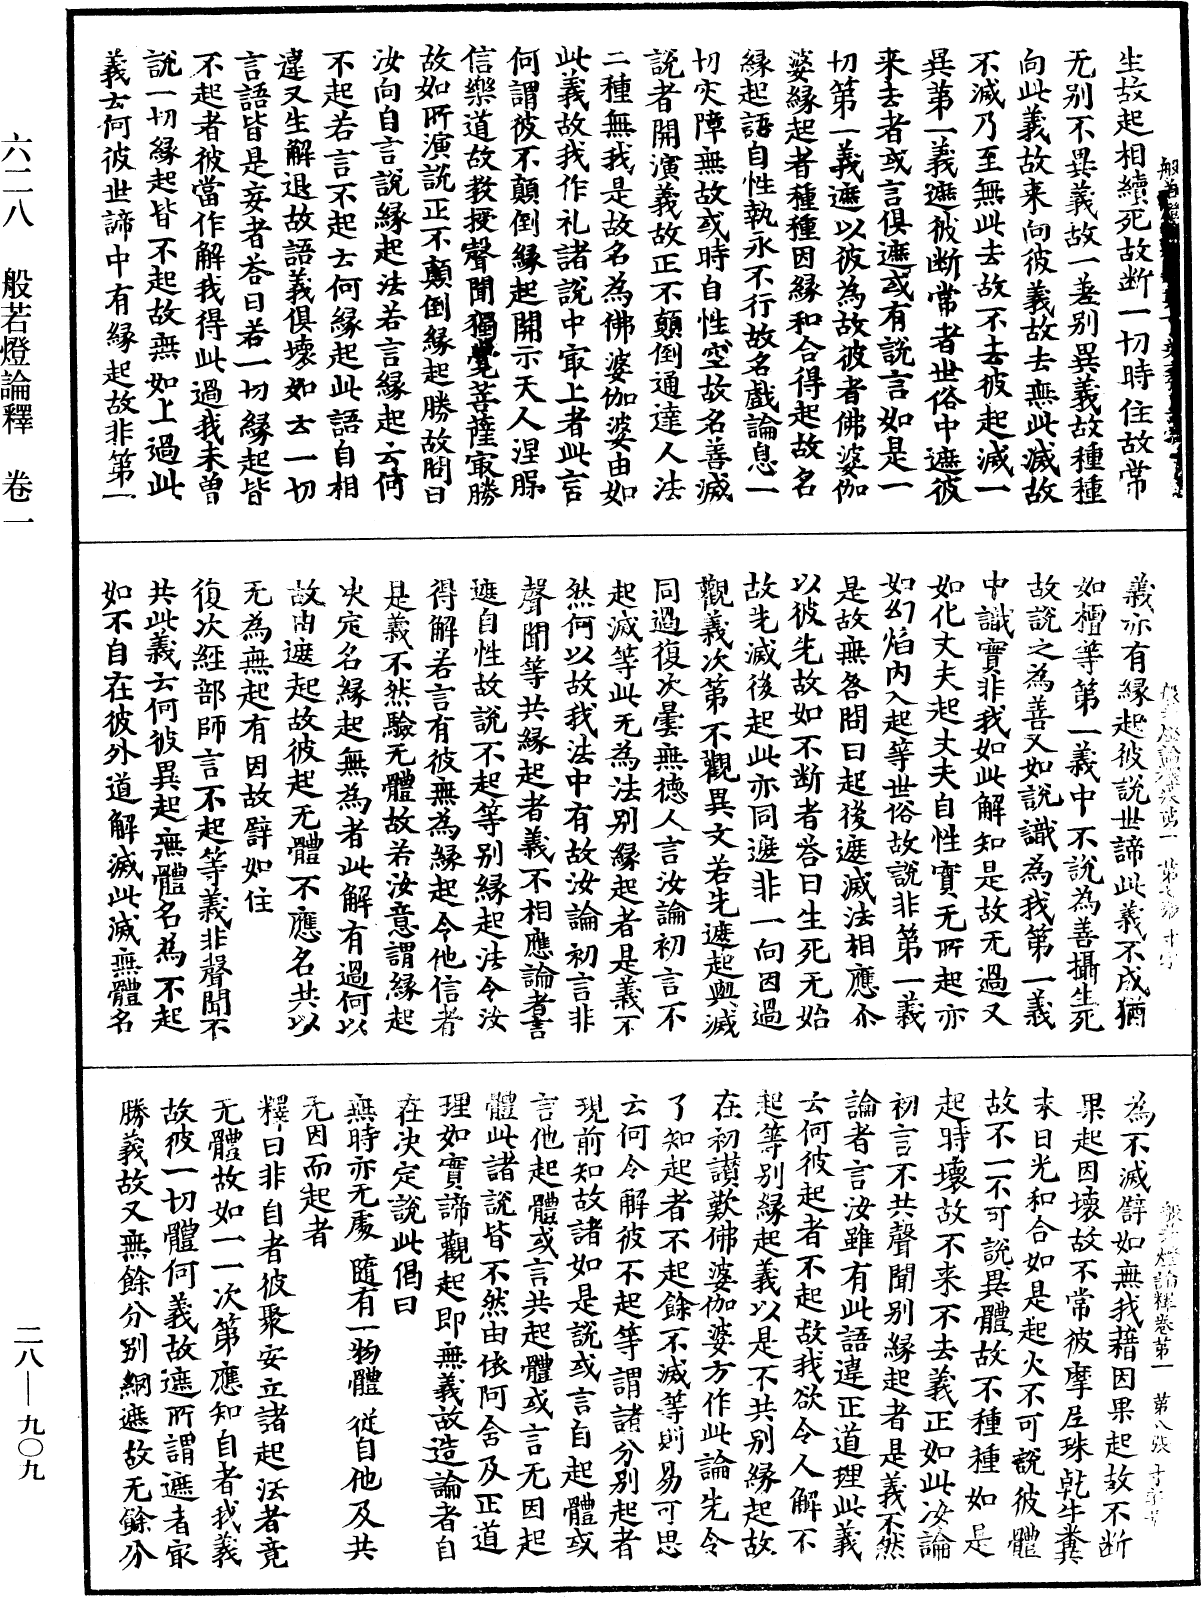 六二八　般若燈論釋　卷一
二八—九〇九
生故起相續死故断一切時住故常
无别不異義故一差别異義故種種
向此義故来向彼義故去無此滅故
不滅乃至無此去故不去彼起滅一
異苐一義遮彼断常者世俗中遮彼
来去者或言俱遮或有說言如是一
切第一義遮以彼為故彼者佛婆伽
婆緣起者種種因緣和合得起故名
緣起語自性執永不行故名戲論息一
切灾障無故或時自性空故名善滅
說者開演義故正不顛倒通達人法
二種無我是故名為佛婆伽婆由如
此義故我作礼諸說中㝡上者此言
何謂彼不顛倒緣起開示天人涅槃
信樂道故教授聲聞獨覺菩薩㝡勝
故如所演說正不顛倒緣起勝故問曰
汝向自言說緣起法若言緣起云何
不起若言不起云何緣起此語自相
違又生解退故語義俱壞如云一切
言語皆是妄者荅曰若一切緣起皆
不起者彼當作解我得此過我未曾
說一切緣起皆不起故無如上過此
義云何彼世諦中有緣起故非第一
義亦有緣起彼說世諦此義不成猶
如檀等第一義中不說為善攝生死
故說之為善又如說識為我第一義
中識實非我如此解知是故无過又
如化丈夫起丈夫自性實无所起亦
如幻焰内入起等世俗故說非第一義
是故無咎問曰起後遮滅法相應尒
以彼先故如不断者荅曰生死无始
故先滅後起此亦同遮非一向因過
觀義次第不觀異文若先遮起與滅
同過復次曇無德人言汝論初言不
起滅等此无為法别緣起者是義不
然何以故我法中有故汝論初言非
聲聞等共緣起者義不相應論者言
遮自性故說不起等别緣起法今汝
得解若言有彼無為緣起令他信者
是義不然驗无體故若汝意謂緣起
决定名緣起無為者此解有過何以
故由遮起故彼起无體不應名共以
无為無起有因故譬如住
復次經部師言不起等義非聲聞不
共此義云何彼異起無體名為不起
如不自在彼外道解滅此滅無體名
為不滅譬如無我藉因果起故不断
果起因壞故不常彼摩尼珠乾牛糞
末日光和合如是起火不可說彼體
故不一不可說異體故不種種如是
起時壞故不来不去義正如此汝論
初言不共聲聞别緣起者是義不然
論者言汝雖有此語違正道理此義
云何彼起者不起故我欲令人解不
起等别緣起義以是不共别緣起故
在初讃歎佛婆伽婆方作此論先令
了知起者不起餘不滅等則易可思
云何令解彼不起等謂諸分别起者
現前知故諸如是說或言自起體或
言他起體或言共起體或言无因起
體此諸說皆不然由依阿含及正道
理如實諦觀起即無義故造論者自
在决定說此偈曰
無時亦无處　隨有一物體　從自他及共
无因而起者
釋曰非自者彼聚安立諸起法者竟
无體故如一一次第應知自者我義
故彼一切體何義故遮所謂遮者㝡
勝義故又無餘分别網遮故无餘分